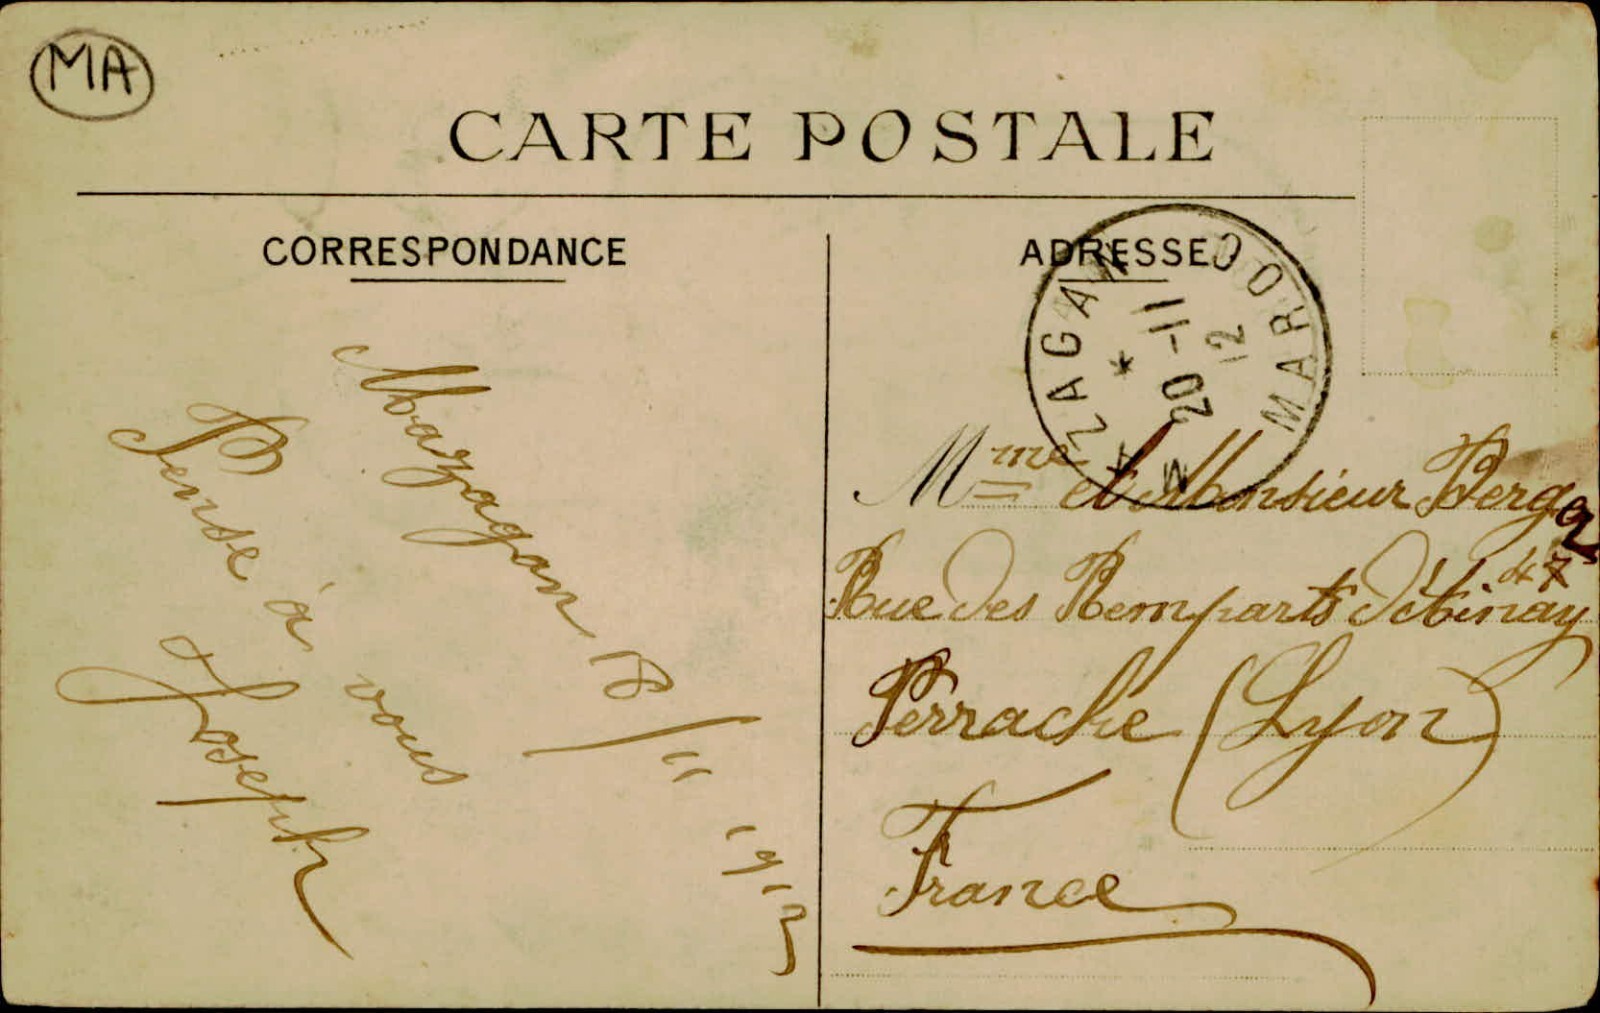 MA
CARTE POSTALE
CORRESPONDANCE
ADRESSE
MAZAGAN
MAROC
*
20-11
12
Mazagan 18/11 1912
Pense à vous
Joseph
Mme et Monsieur Berger
47
Rue des Remparts d'Ainay
Perrache (Lyon)
France